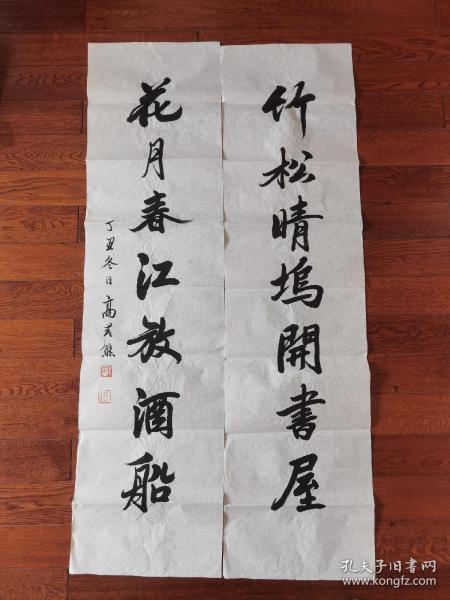 竹松晴坞開書屋
花月春江放酒船
丁丑冬日高式熊
孔夫子旧书网
www.kongfz.com